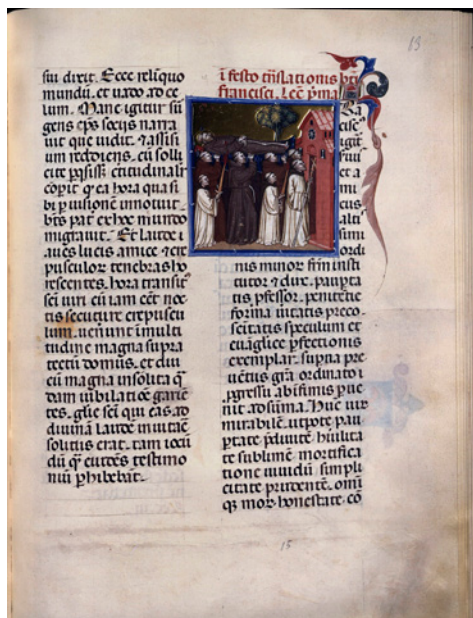 sui dixit. Ecce relīquo
mundū. et uado ad ce
lum. Mane igitur sū
gens eps sociis narra
uit que uidit. ⁊ assisi
um rediens. cū solli
bi p uisionē innotuit.
bts pat ex hoc mundo
migrauit. Et
aues lucis amice ⁊ cre
pusculoꝝ tenebras ho
rescentes. hora transit
sci uiri cū iam eēt noc
tis secuture crepuscu
lum. ī multi
tudine magna supra
tectū domus. et diu
cū magna insolita q
dam iubilatiōe
tes. glīe sci qui eas ad
diuinā laudē inuitare
solitus erat. tam iocū
dū q testimo
niū phibebāt.
ī festo trāslationis bti
francisci. Lcc pma
igit
fuit
et a
mi
cus
alti
simi
ordi
nis minor frm insti
tutor ⁊ dux. paupta
tis pfessor. penitētie
forma uitatis preco.
scitatis speculum et
euāglice pfectionis
exemplar. supna pre
uētus grā ordinato i
pgressu ab ifimis pue
nit ad sūma. Hūc uir
mirabilē. utpote pau
ptate pdiuitē hūilita
te sublimē mortifica
tione uiuidū simpli
citate prudentē. omī
qꝫ mor honestate cō
13
15